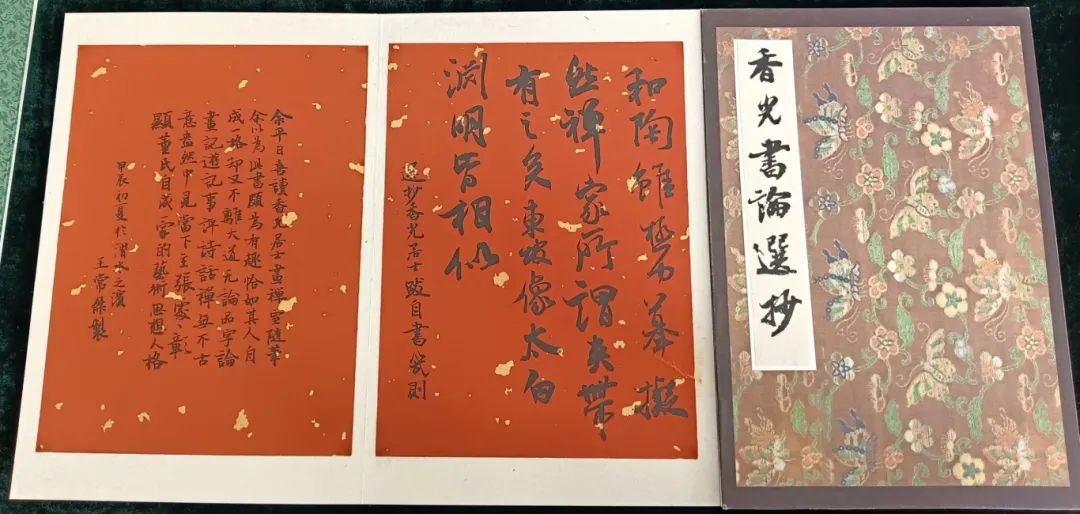 香光書論選抄
和陶雖極力摹擬
些禪家所謂夾帶
有之矣東坡像太白
淵明皆相似
選抄香光居士跋自書幾則
余平日喜讀香光居士畫禪室隨筆
余以為此書頗為有趣恰如其人自
成一格却又不離大道无論品字論
畫記遊記事評詩話禪無不古
意盎然中見當下主張處、彰
顯董氏自成的藝術思想人格
甲辰初夏於渭水之濱
王常傑製